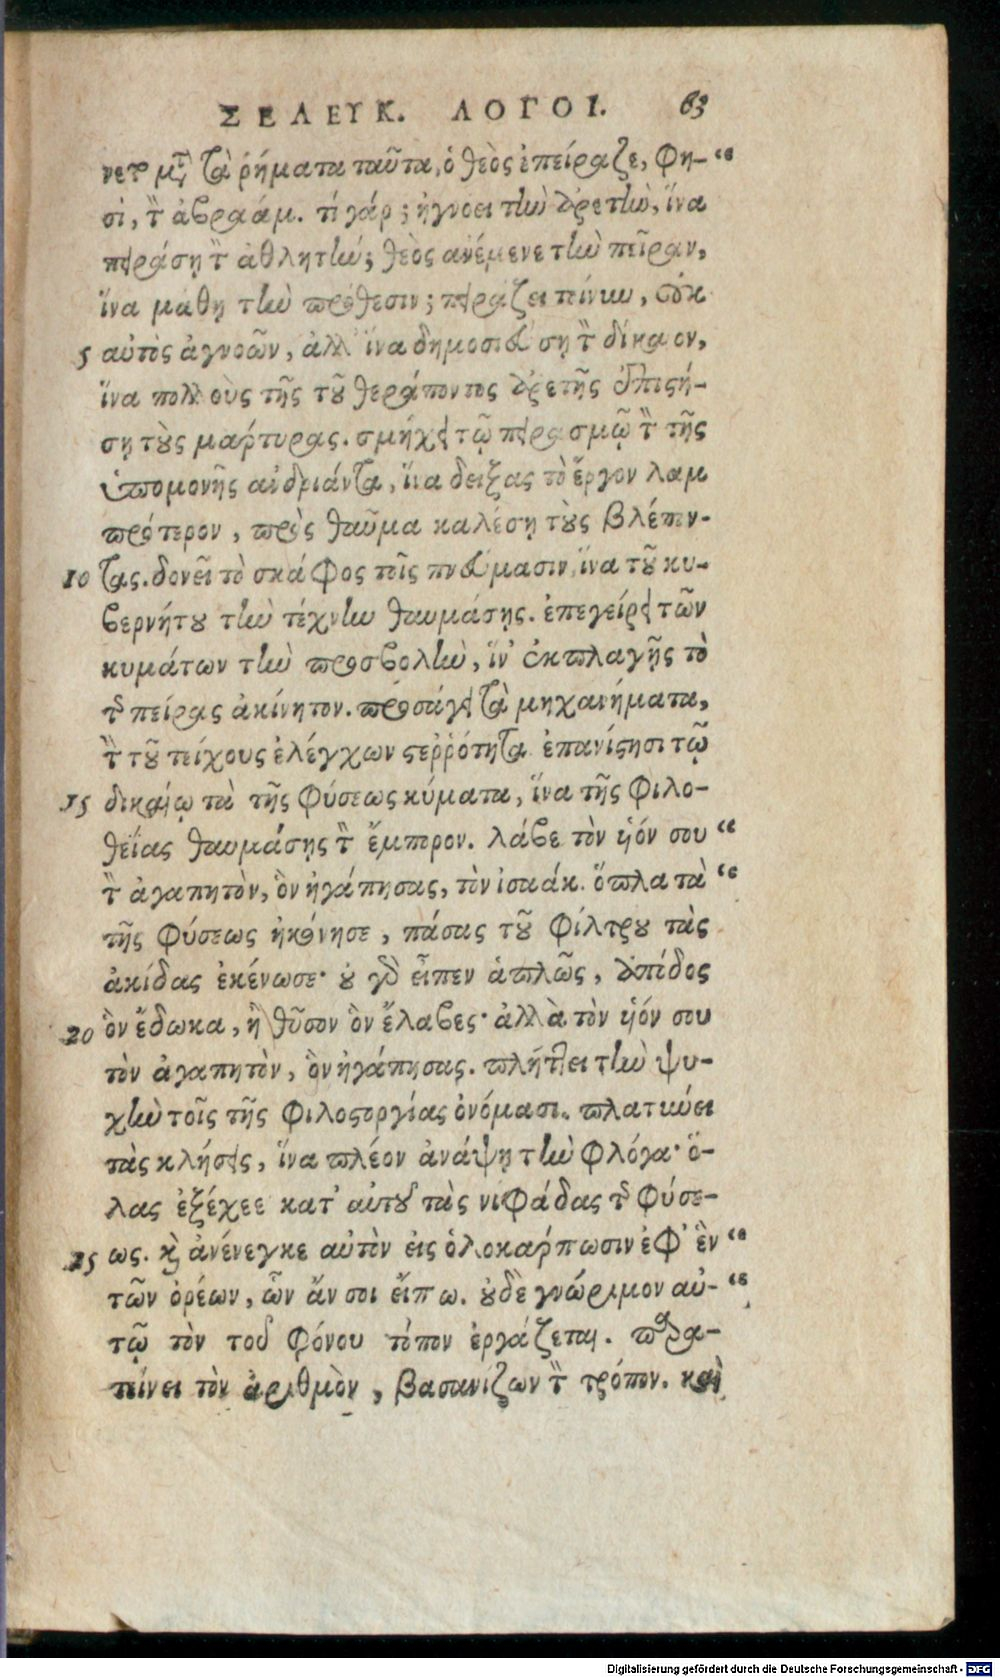 ΣΕΛΕΥΚ. ΛΟΓΟΙ. 63
νετο μετὰ τὰ ῥήματα ταῦτα, ὁ θεὸς ἐπείραζε, φη- “
σὶ, τὸν ἀβραάμ. τί γάρ; ἠγνόει τὴν ἀρετὴν, ἵνα
πειράσῃ τὸν ἀθλητήν; θεὸς ἀνέμενε τὴν πεῖραν,
ἵνα μάθῃ τὴν πρόθεσιν; πειράζει τοίνυν, οὐκ
5 αὐτὸς ἀγνοῶν, ἀλλ' ἵνα δημοσιεύσῃ τὸν δίκαιον,
ἵνα πολλοὺς τῆς τοῦ θεράποντος ἀρετῆς ἐπιστή-
σῃ τοὺς μάρτυρας. σμήχει τῷ πειρασμῷ τὸν τῆς
ὑπομονῆς ἀνδριάντα, ἵνα δείξας τὸ ἔργον λαμ
πρότερον, πρὸς θαῦμα καλέσῃ τοὺς βλέπον-
10 τας. δονεῖ τὸ σκάφος τοῖς πνεύμασιν, ἵνα τοῦ κυ-
βερνήτου τὴν τέχνην θαυμάσῃς. ἐπεγείρει τῶν
κυμάτων τὴν προσβολὴν, ἵν' ἐκπλαγῇς τὸ
τῆς πείρας ἀκίνητον. προσάγει τὰ μηχανήματα,
τὴν τοῦ τείχους ἐλέγχων στεῤῥότητα. ἐπανίστησι τῷ
15 δικαίῳ τὰ τῆς φύσεως κύματα, ἵνα τῆς φιλο-
θεΐας θαυμάσῃς τὸν ἔμπορον. λάβε τὸν υἱόν σου “
τὸν ἀγαπητὸν, ὃν ἠγάπησας, τὸν ἰσαάκ. ὅπλα τὰ “
τῆς φύσεως ἠκόνησε, πάσας τοῦ φίλτρου τὰς
ἀκίδας ἐκένωσε· οὐ γὰρ εἶπεν ἁπλῶς, ἀπίδος
20 ὃν ἔδωκα, ἢ θῦσον ὃν ἔλαβες· ἀλλὰ τὸν υἱόν σου
τὸν ἀγαπητὸν, ὃν ἠγάπησας. πλήττει τὴν ψυ-
χὴν τοῖς τῆς φιλοστοργίας ὀνόμασι. πλατύνει
τὰς κλήσεις, ἵνα πλέον ἀνάψῃ τὴν φλόγα· ὅ-
λας ἐξέχεε κατ' αὐτοῦ τὰς νιφάδας τῆς φύσε-
25 ως. καὶ ἀνένεγκε αὐτὸν εἰς ὁλοκάρπωσιν ἐφ' ἓν “
τῶν ὀρέων, ὧν ἄν σοι εἴπω. οὐδὲ γνώριμον αὐ- “
τῷ τὸν τοῦ φόνου τόπον ἐργάζεται. παρα-
τείνει τὸν ἀριθμὸν, βασανίζων τὸν τρόπον. καὶ
Digitalisierung gefördert durch die Deutsche Forschungsgemeinschaft - DFG